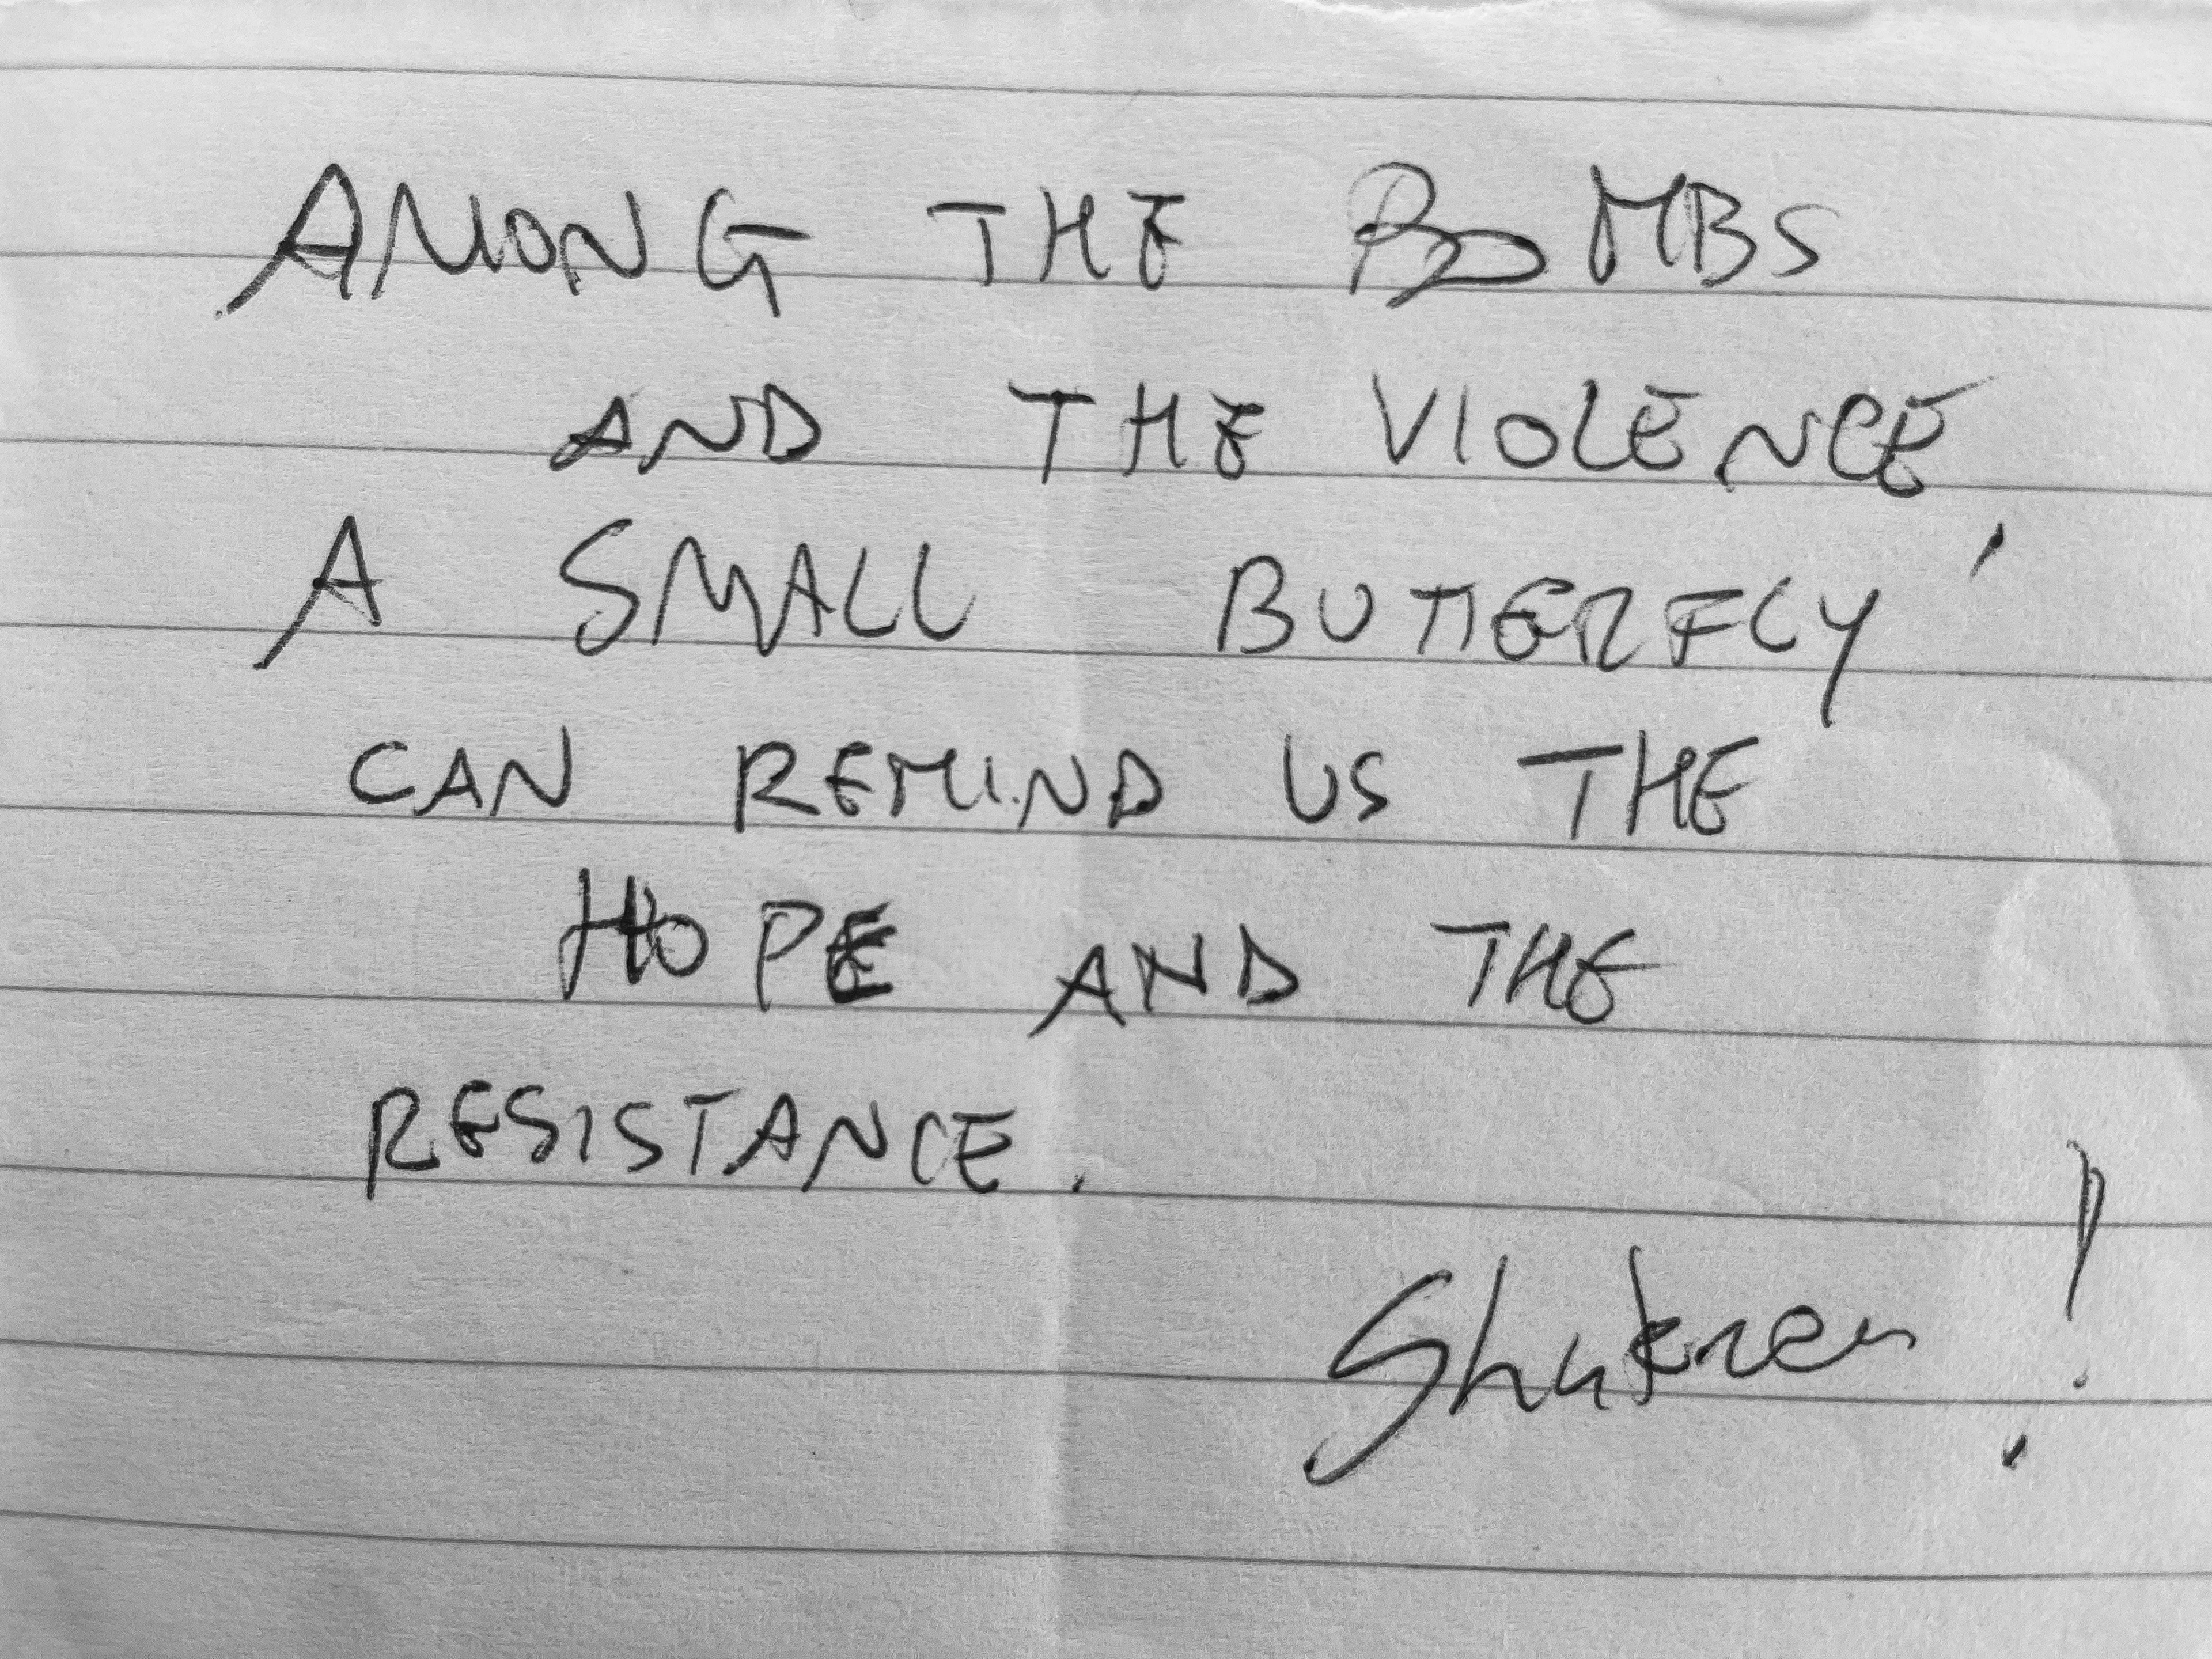 AMONG THE BOMBS
AND THE VIOLENCE,
A SMALL BUTTERFLY
CAN REMIND US THE
HOPE AND THE
RESISTANCE.
Shukran!